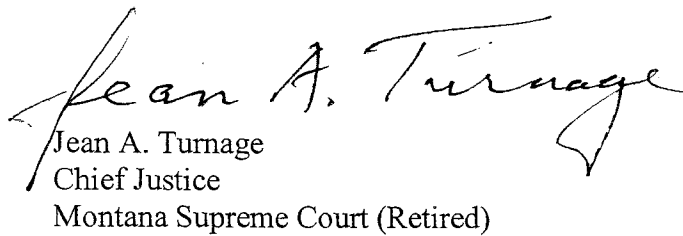 Jean A. Turnage
Jean A. Turnage
Chief Justice
Montana Supreme Court (Retired)